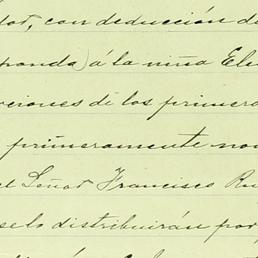 dor, con deducción de
ponda) á la niña Ele
ciones de los primero
primeramente no
el Señor Francisco Ru
selo distribuirán por